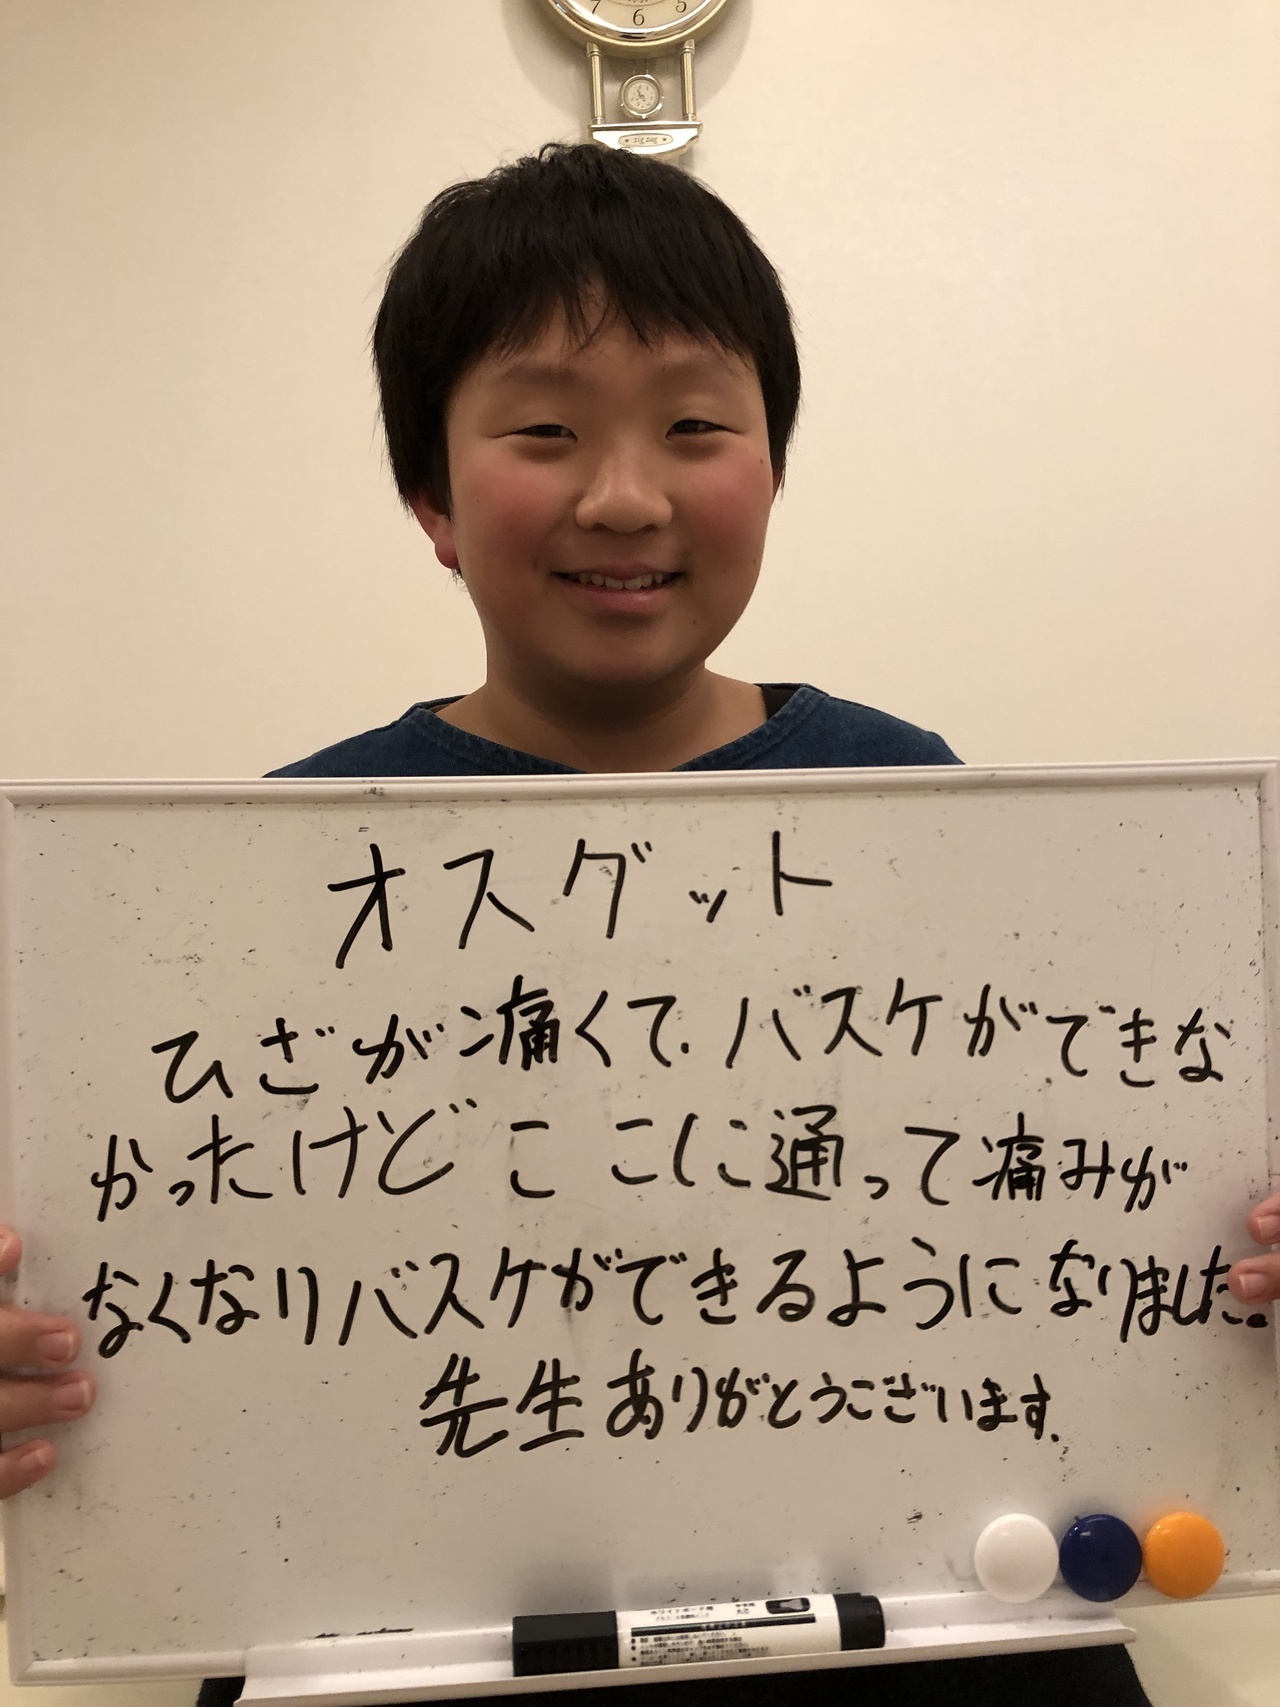 7 6 5
オスグット
ひざが痛くて.バスケができな
かったけどここに通って痛みが
なくなりバスケができるようになりました。
先生ありがとうございます.
ホワイトボード用